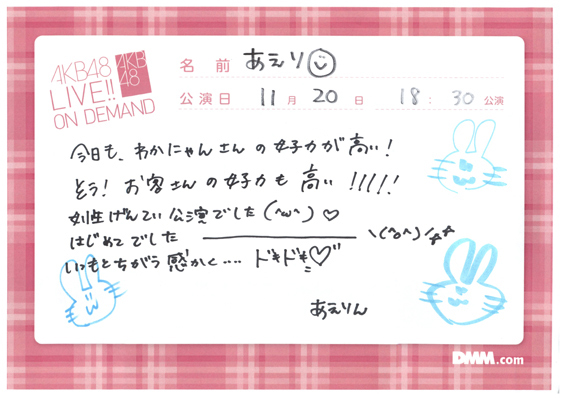 AKB48
LIVE!!
ON DEMAND
AKB
48
名前 あえり
公演日 11月20日 18:30公演
今日も、わかにゃんさんの女子力が高い!
そう! お客さんの女子力も高い!!!!!
女性げんてい公演でした(^ω^)♡
はじめてでした ――――― \(^o^)/
いつもとちがう感かく‥‥ドキドキ♡
あえりん
DMM.com